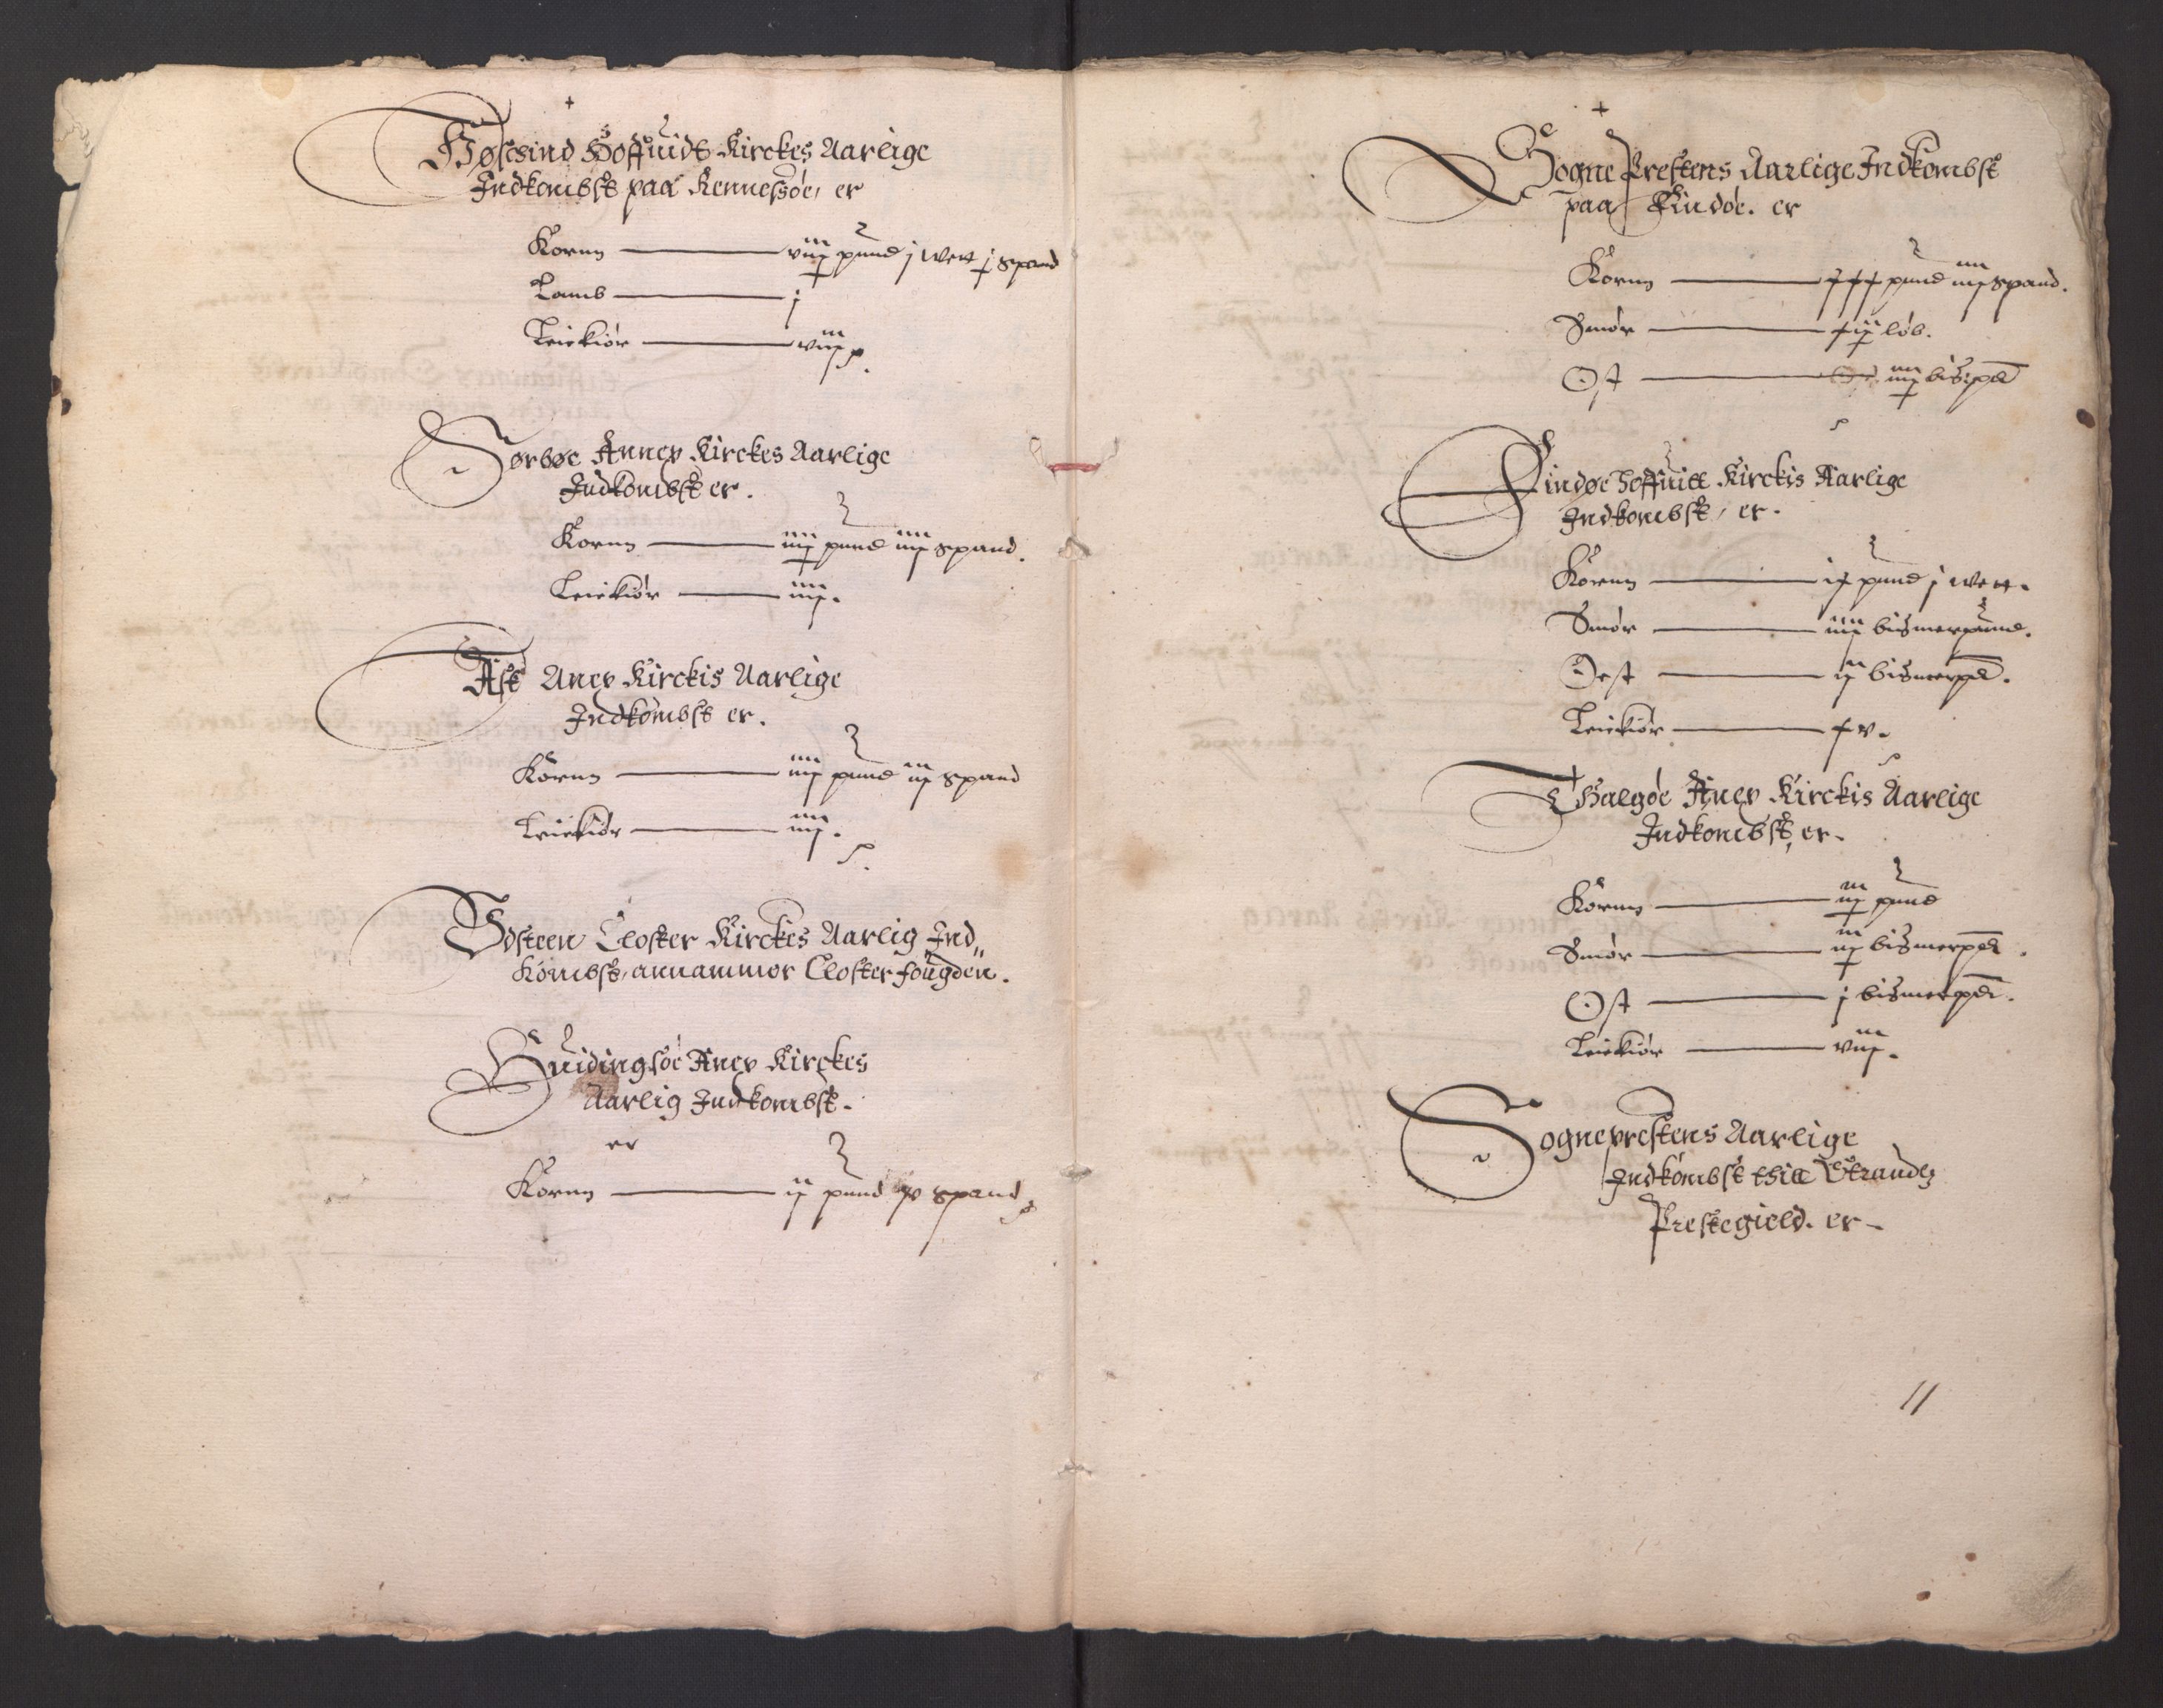 Høsesind Hoffuidt Kirckes Aarlige
Indkombst paa Rennessøe, er
Kornn — viij pund j wett j spand
Lamb — j
Leiekiør — viij
Sørbøe Annex Kirckes Aarlige
Indkombst er.
Kornn — iiij pund iiij spand.
Leiekiør — iiij.
Ask Anex Kirckis Aarlige
Indkombst er.
Kornn — iiij pund iij spand
Leiekiør — iiij.
Vdsteen Closter Kirckes Aarlig Ind„
kombst, annammer Closter fougden.
Huidingsøe Anex Kirckes
Aarlig Indkombst.
er
Kornn — ij pund spand
Sogne Prestens Aarlige Indkombst
paa Findøe. er
Kornn — xxx pund iiij spand.
Smør — xij løb.
Ost — iiij bismpd
Findøe Hoffuitt Kirckis Aarlige
Indkombst, er.
Kornn — ix pund j wett.
Smør — iiij bismerpund.
Oest — ij bismerpd.
Leiekiør — xv.
Thalgøe Anex Kirckis Aarlige
Indkombst, er.
Kornn — iij pund
Smør — iij bismerpd.
Ost — j bismerpd.
Leiekiør — viij.
Sogneprestens Aarlige
Indkombst thill Strandtz
Prestegield. er
11